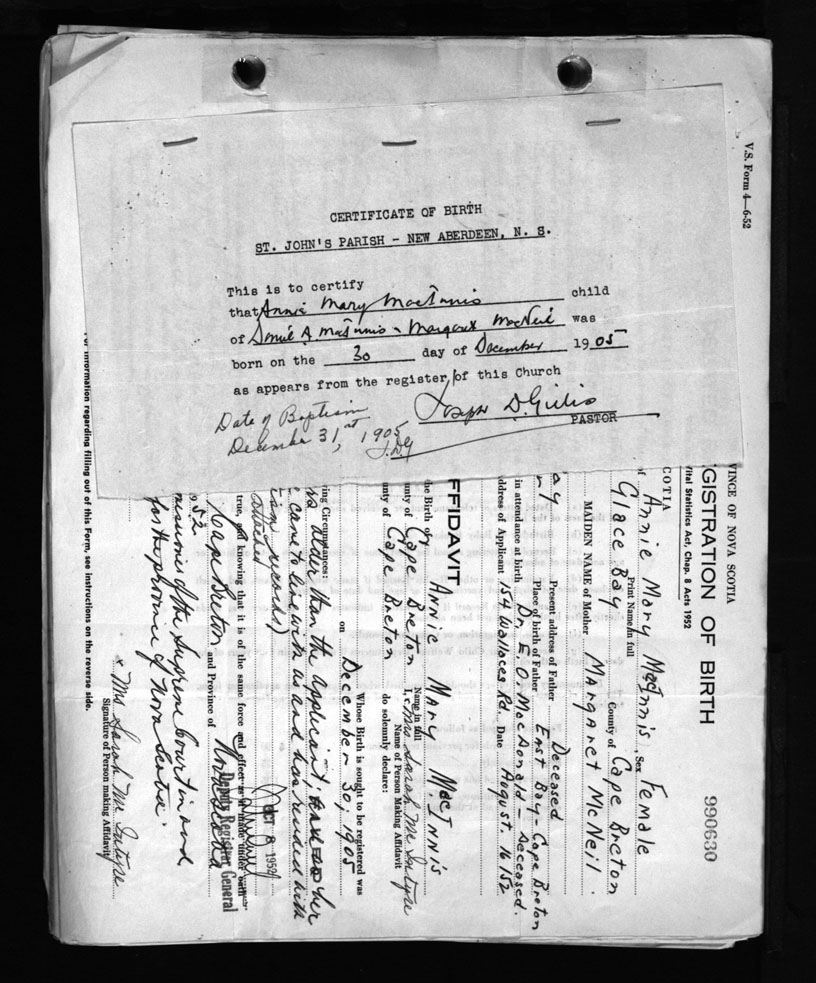 CERTIFICATE OF BIRTH
ST. JOHN'S PARISH - NEW ABERDEEN, N. S.
This is to certify
that Annie Mary MacInnis child
of A. MacInnis & Margaret MacNeil was
born on the 30 day of December 1905
as appears from the register of this Church
Joseph D. Gillis
PASTOR
Date of Baptism
December 31, st 1905
J.DG
V.S. Form 4—6-52
VINCE OF NOVA SCOTIA
GISTRATION OF BIRTH
990630
Vital Statistics Act, Chap. 8 Acts 1952
COTIA
Annie Mary MacInnis, Sex Female
Print Name in full
Glace Bay County of Cape Breton
MAIDEN NAME of Mother Margaret McNeil
Present address of Father Deceased
Place of birth of Father East Bay - Cape Breton
in attendance at birth Dr. E. O. MacDonald - Deceased.
address of Applicant 154 Wallaces Rd. Date August. 16/52
FFIDAVIT
the Birth of Annie Mary MacInnis
Name in full
unty of Cape Breton I, Mrs Sarah Mc Intyre
Name of Person Making Affidavit
unty of Cape Breton do solemnly declare:
Whose Birth is sought to be registered was
on December 30, 1905
ring Circumstances:
is older than the applicant; her
came to live with us and has resided with
records)
attached
true, and knowing that it is of the same force and effect as if made under oath
Cape Breton and Province of Nova Scotia
OCT 8 1952
Deputy Registrar General
52
missioner of the Supreme Court in and
for the province of Nova Scotia.
x Mrs Sarah Mc Intyre
Signature of Person making Affidavit
For information regarding filling out of this Form, see instructions on the reverse side.